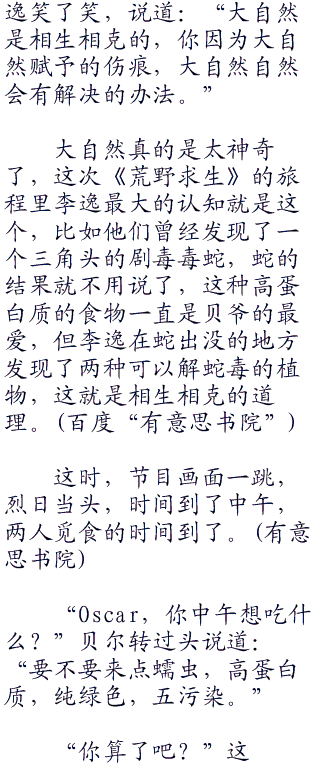 逸笑了笑，说道：“大自然
是相生相克的，你因为大自
然赋予的伤痕，大自然自然
会有解决的办法。”
大自然真的是太神奇
了，这次《荒野求生》的旅
程里李逸最大的认知就是这
个，比如他们曾经发现了一
个三角头的剧毒毒蛇，蛇的
结果就不用说了，这种高蛋
白质的食物一直是贝爷的最
爱，但李逸在蛇出没的地方
发现了两种可以解蛇毒的植
物，这就是相生相克的道
理。(百度“有意思书院”)
这时，节目画面一跳，
烈日当头，时间到了中午，
两人觅食的时间到了。(有意
思书院)
“Oscar，你中午想吃什
么？”贝尔转过头说道：
“要不要来点蠕虫，高蛋白
质，纯绿色，五污染。”
“你算了吧？”这